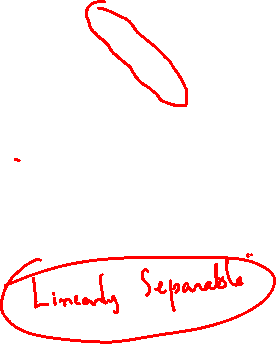 Linearly Separable